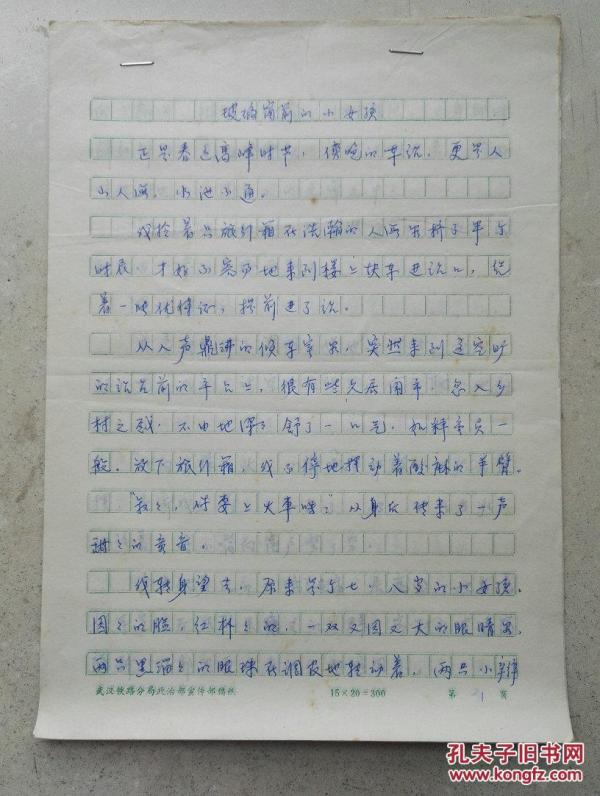 玻璃窗前的小女孩
正是春运高峰时节，傍晚的车站，更是人
山人海，水泄不通。
我拎着只旅行箱在浩瀚的人海里挤了半个
时辰，才好不容易地来到楼上快车进站口，凭
着一张优待证，提前进了站。
从人声鼎沸的候车室里，突然来到这空旷
的站台前的平台上，很有些
村之感，不由地深深舒了一口气，如释重负一
般。放下旅行箱，我不停地摆动着酸麻的手臂。
"叔叔，你要上火车吗？"从身后传来了一声
甜甜的童音。
我转身望去，原来是个七、八岁的小女孩，
圆圆的脸，红扑扑的，一双又圆又大的眼睛里，
两只黑溜溜的眼珠在调皮地转动着，两只小辫
武汉铁路分局政治部宣传部稿纸
15×20=300
第 1 页
孔夫子旧书网
www.kongfz.com